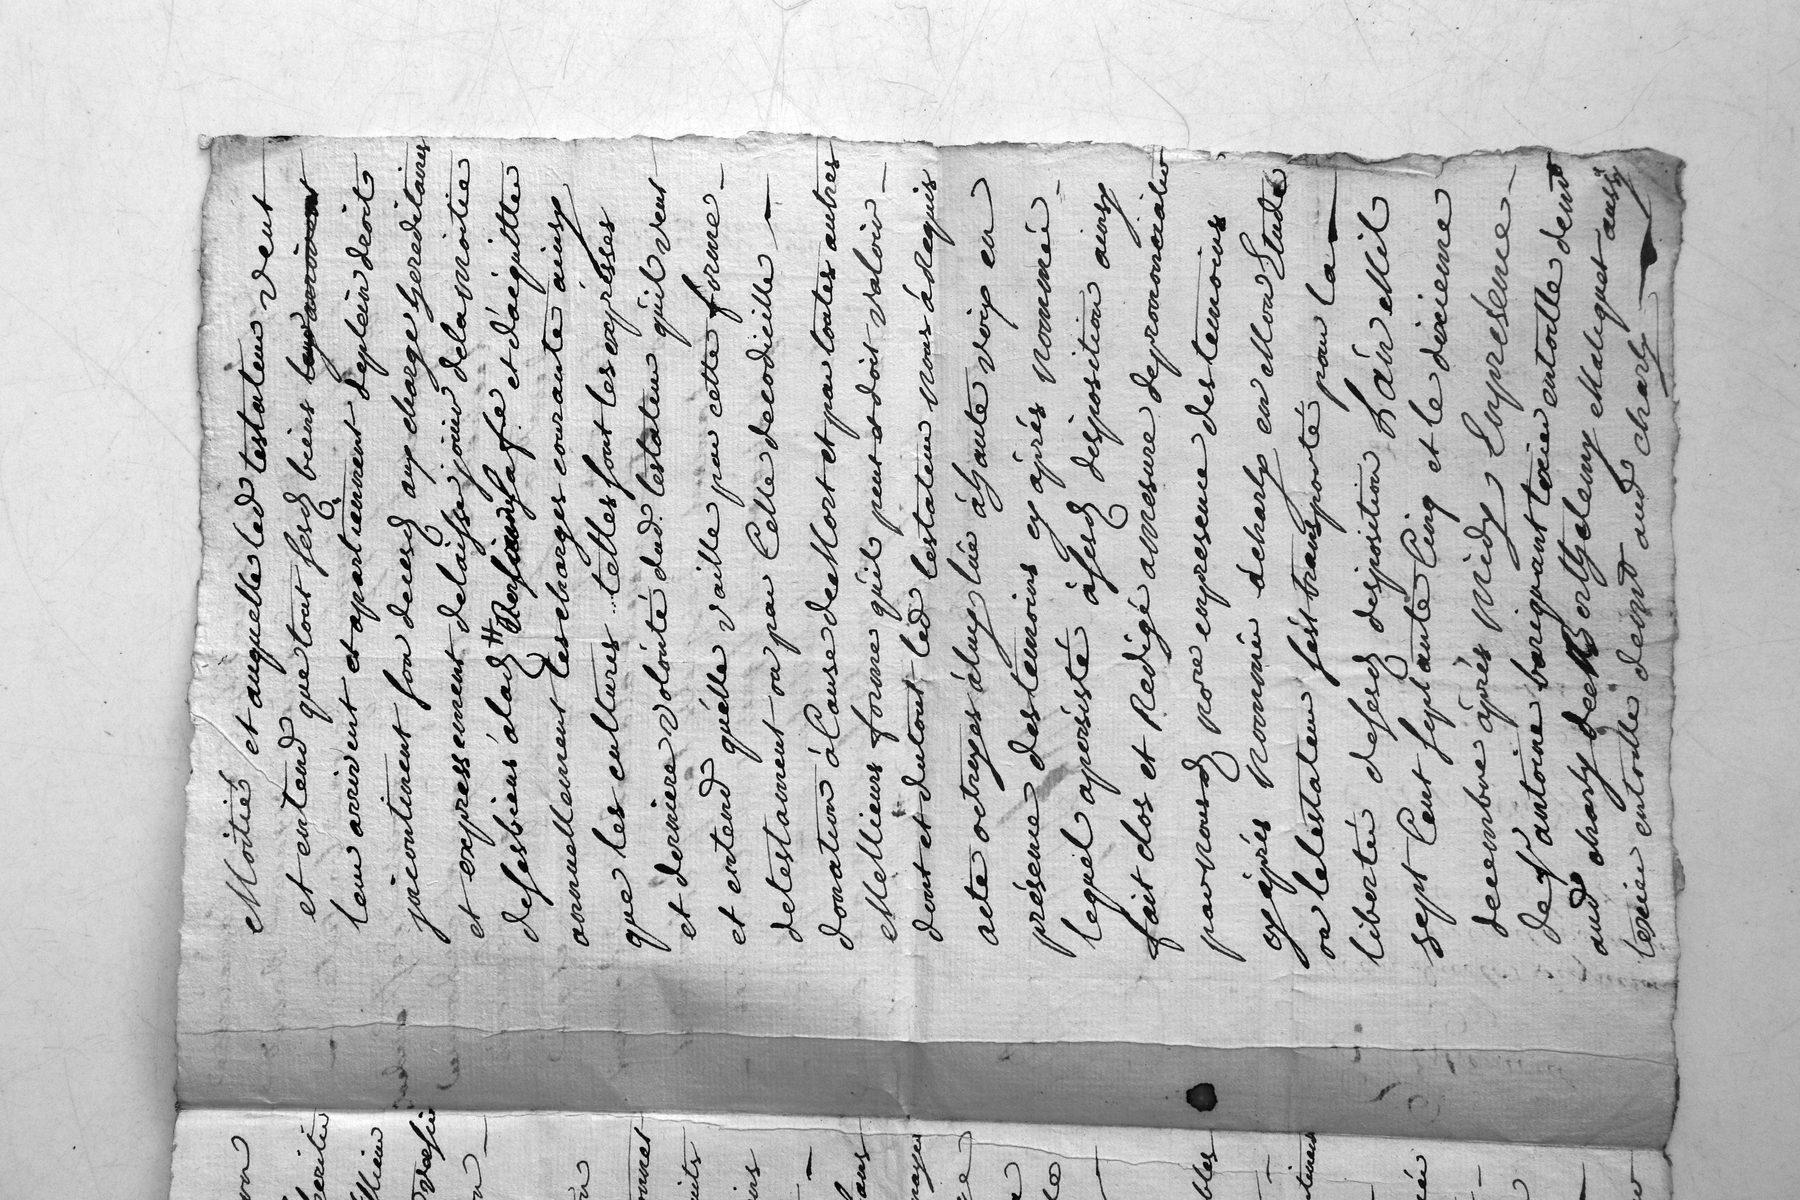 Moitié et auquelle led testateur veut
et entend que tout sesd biens
leur arrivent et apartiennent deplein droit
jncontinent son decesd aux charge hereditaires
et expressement delaisser jouir dela moitie
desesbiens alad # et d'acquitter
annuellement les charges courante ainsy
que les cultures telles sont les expresses
et derniere volonté dud. testateur qu'il veut
et entend qu'elle vaille par cette forme
detestament ou par Celle decodicille
donation à Cause de Mort et par toutes autres
Meillieurs forme qu'il peut et doit valoir
dont et dutout led testateur nous à requis
acte octroyes à luy luë àhaute voix en
présence des temoins cy après nommée
lequel apersisté àsesd disposition ainsy
fait clos et Redigé amesure depronunciation
par nousd nore enpresence des temoins
cy après nommée à charly en Mon Etude
ou letestateur s'est transporté pour la
liberté desesd disposition L'an Mil
sept Cent septante Cinq et le dixieme
decembre après Midy Enpresence
de sr antoine tixier entoille demt
aud charly de Berthelemy Maliquet aussy
tixier entoille demt aud charly